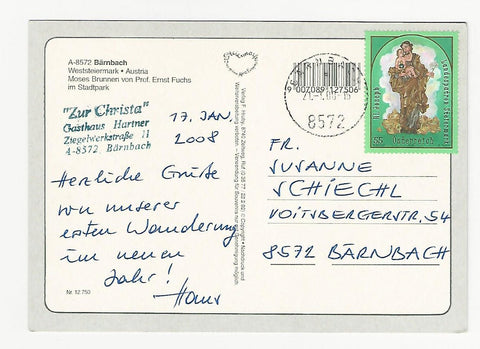 A-8572 Bärnbach
Weststeiermark • Austria
Moses Brunnen von Prof. Ernst Fuchs
im Stadtpark
"Zur Christa"
Gasthaus Hartner
Ziegelwerkstraße 11
A-8572 Bärnbach
17. JAN.
2008
Herzliche Grüße
von unserer
ersten Wanderung
im neuen
Jahr!
Hans
Nr. 12 750
9 007089 127506
8572
55
Österreich
FR.
SUSANNE
SCHIECHL
VOITSBERGERSTR. 54
8572 BÄRNBACH